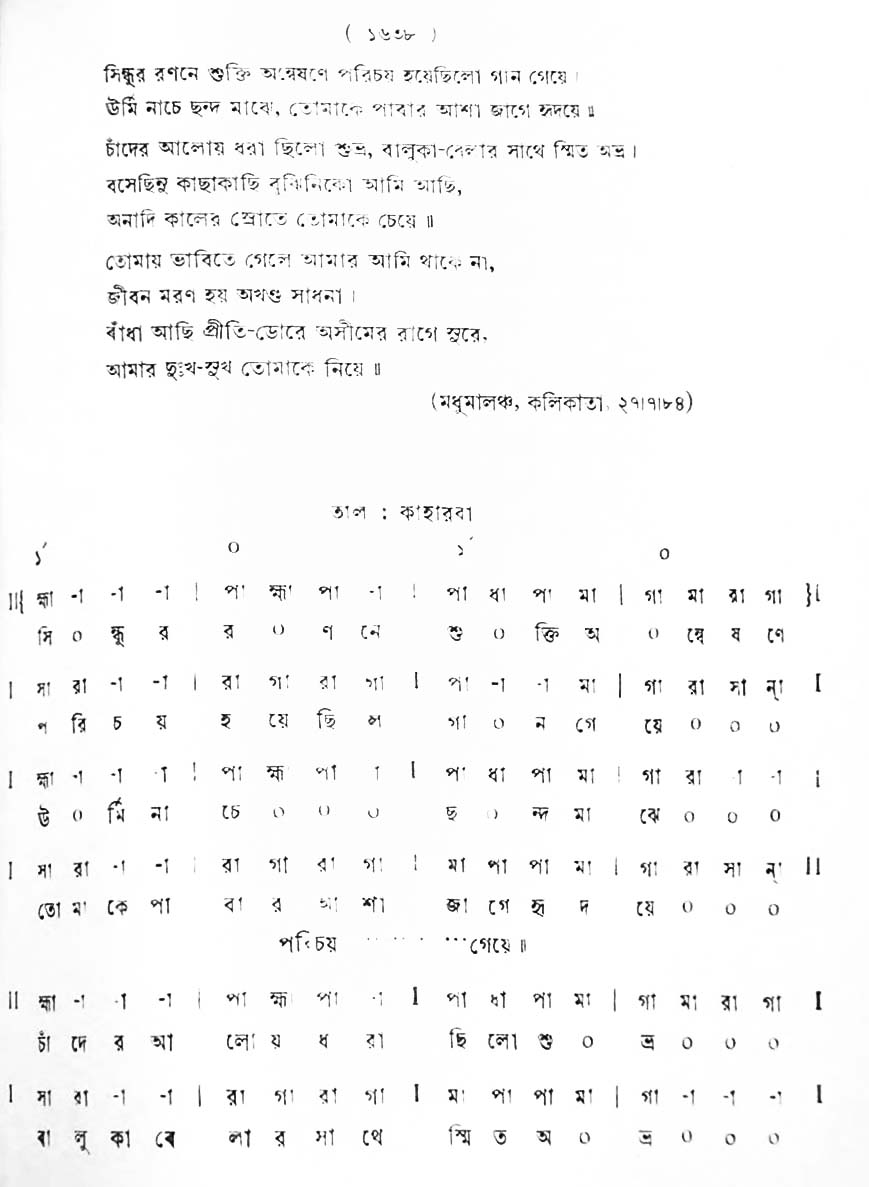 ( ১৬৩৮ )
সিন্ধুর রণনে শুক্তি অন্বেষণে পরিচয় হয়েছিলো গান গেয়ে।
ঊর্মি নাচে ছন্দ মাঝে, তোমাকে পাবার আশা জাগে হৃদয়ে॥
চাঁদের আলোয় ধরা ছিলো শুভ্র, বালুকা-বেলার সাথে স্মিত অভ্র।
বসেছিনু কাছাকাছি বুঝিনিকো আমি আছি,
অনাদি কালের স্রোতে তোমাকে চেয়ে॥
তোমায় ভাবিতে গেলে আমার আমি থাকে না,
জীবন মরণ হয় অখণ্ড সাধনা।
বাঁধা আছি প্রীতি-ডোরে অসীমের রাগে সুরে,
আমার দুঃখ-সুখ তোমাকে নিয়ে॥
(মধুমালঞ্চ, কলিকাতা, ২৭।৭।৮৪)
তাল : কাহারবা
১´ ০ ১´ ০
II{ হ্মা -া -া -া | পা হ্মা পা -া | পা ধা পা মা | গা মা রা গা }I
সি ০ ন্ধু র র ০ ণ নে শু ০ ক্তি অ ০ ন্বে ষ ণে
I সা রা -া -া | রা গা রা গা I পা -া -া মা | গা রা সা ন্া I
প রি চ য় হ য়ে ছি ল গা ০ ন গে য়ে ০ ০ ০
I হ্মা -া -া -া | পা হ্ম পা া I পা ধা পা মা | গা রা -া -া I
ঊ ০ র্মি না চে ০ ০ ০ ছ ০ ন্দ মা ঝে ০ ০ ০
I সা রা -া -া | রা গা রা গা | মা পা পা মা | গা রা সা ন্া II
তো মা কে পা বা র আ শা জা গে হৃ দ য়ে ০ ০ ০
পরিচয় ... ... ...গেয়ে॥
II হ্মা -া -া -া | পা হ্ম পা -া I পা ধা পা মা | গা মা রা গা I
চাঁ দে র আ লো য় ধ রা ছি লো শু ০ ভ্র ০ ০ ০
I সা রা -া -া | রা গা রা গা I মা পা পা মা | গা -া -া -া I
বা লু কা বে লা র সা থে স্মি ত অ ০ ভ্র ০ ০ ০